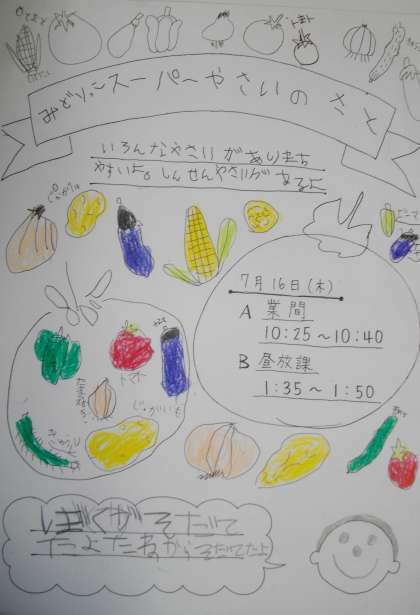 トマト
みどりっこスーパーやさいのさと
いろんなやさいがあります
やすいよ。しんせんやさいがあるよ
7月16日(木)
A 業間
10:25～10:40
B 昼放課
1:35～1:50
トマト
じゃがいも
ぼくがそだて
たよたねからそだてたよ